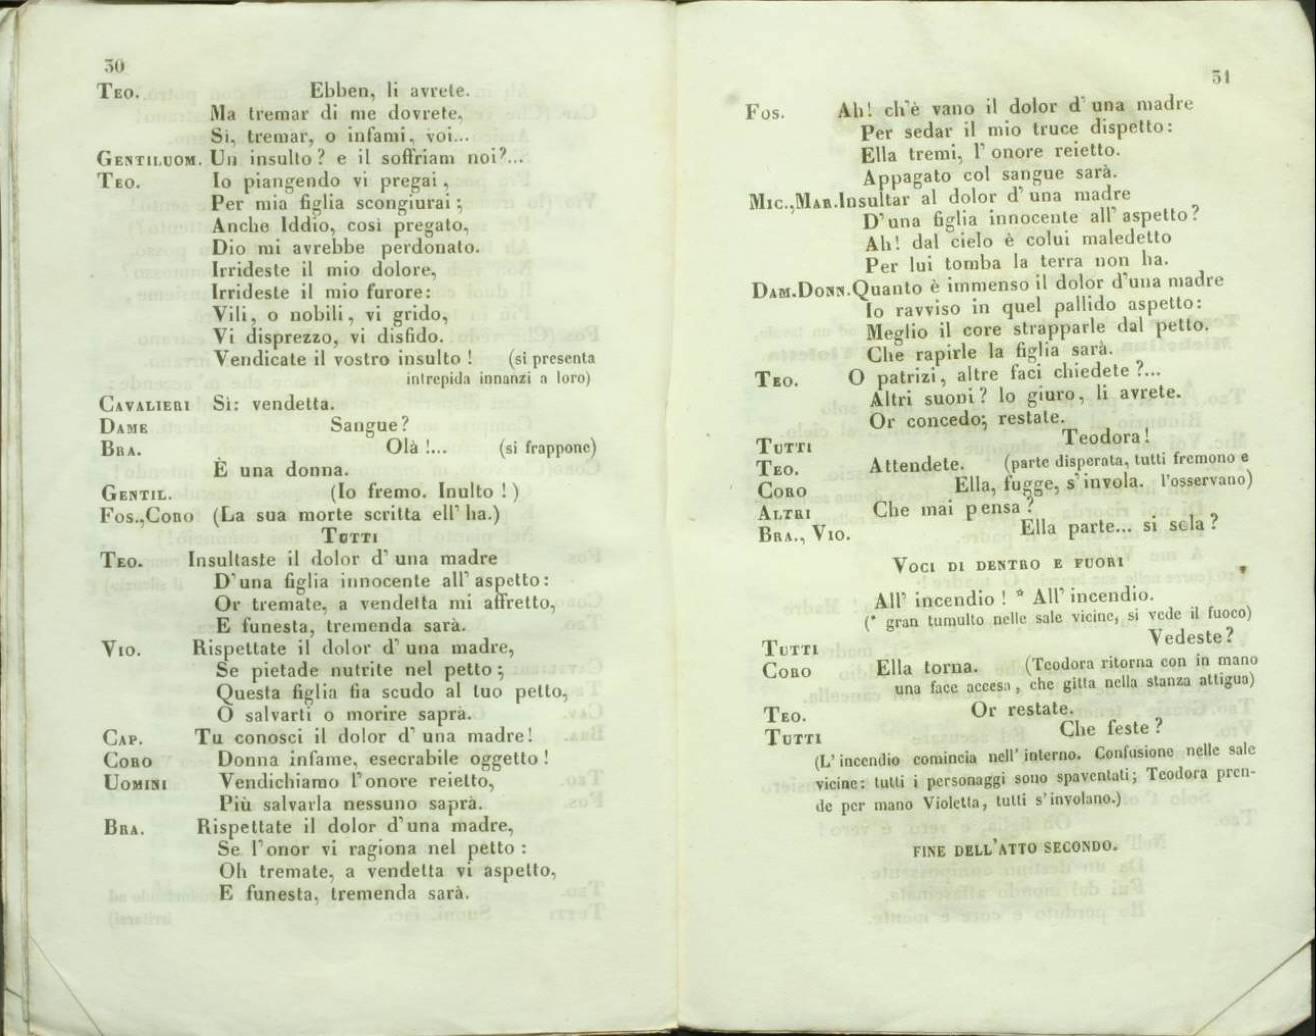 30
TEO. Ebben, li avrete.
Ma tremar di me dovrete,
Si, tremar, o infami, voi...
GENTILUOM. Un insulto? e il soffriam noi?...
TEO. Io piangendo vi pregai,
Per mia figlia scongiurai;
Anche Iddio, così pregato,
Dio mi avrebbe perdonato.
Irrideste il mio dolore,
Irrideste il mio furore:
Vili, o nobili, vi grido,
Vi disprezzo, vi disfido.
Vendicate il vostro insulto! (si presenta
intrepida innanzi a loro)
CAVALIERI Sì: vendetta.
DAME Sangue?
BRA. Olà!... (si frappone)
È una donna.
GENTIL. (Io fremo. Inulto!)
FOS.,CORO (La sua morte scritta ell' ha.)
TUTTI
TEO. Insultaste il dolor d' una madre
D'una figlia innocente all' aspetto:
Or tremate, a vendetta mi affretto,
E funesta, tremenda sarà.
VIO. Rispettate il dolor d' una madre,
Se pietade nutrite nel petto;
Questa figlia fia scudo al tuo petto,
O salvarti o morire saprà.
CAP. Tu conosci il dolor d' una madre!
CORO Donna infame, esecrabile oggetto!
UOMINI Vendichiamo l'onore reietto,
Più salvarla nessuno saprà.
BRA. Rispettate il dolor d'una madre,
Se l'onor vi ragiona nel petto:
Oh tremate, a vendetta vi aspetto,
E funesta, tremenda sarà.
31
FOS. Ah! ch'è vano il dolor d' una madre
Per sedar il mio truce dispetto:
Ella tremi, l' onore reietto.
Appagato col sangue sarà.
MIC.,MAR.Insultar al dolor d' una madre
D'una figlia innocente all' aspetto?
Ah! dal cielo è colui maledetto
Per lui tomba la terra non ha.
DAM.DONN.Quanto è immenso il dolor d'una madre
Io ravviso in quel pallido aspetto:
Meglio il core strapparle dal petto.
Che rapirle la figlia sarà.
TEO. O patrizi, altre faci chiedete?...
Altri suoni? Io giuro, li avrete.
Or concedo; restate.
TUTTI Teodora!
TEO. Attendete. (parte disperata, tutti fremono e
CORO Ella, fugge, s' invola. l'osservano)
ALTRI Che mai pensa?
BRA., VIO. Ella parte... si scla?
VOCI DI DENTRO E FUORI
All' incendio! * All' incendio.
(* gran tumulto nelle sale vicine, si vede il fuoco)
TUTTI Vedeste?
CORO Ella torna. (Teodora ritorna con in mano
una face accesa, che gitta nella stanza attigua)
TEO. Or restate.
TUTTI Che feste?
(L' incendio comincia nell' interno. Confusione nelle sale
vicine: tutti i personaggi sono spaventati; Teodora pren-
de per mano Violetta, tutti s'involano.)
FINE DELL'ATTO SECONDO.